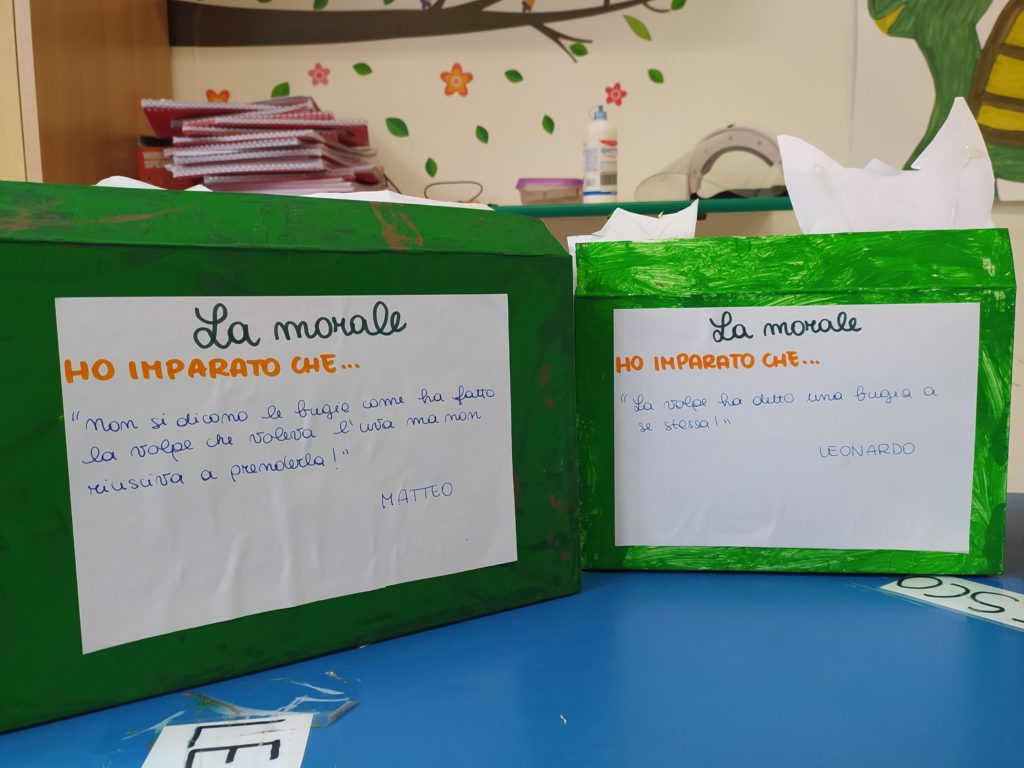 La morale
HO IMPARATO CHE...
"Non si dicono le bugie come ha fatto
la volpe che voleva l'uva ma non
riusciva a prenderla!"
MATTEO
La morale
HO IMPARATO CHE...
"La volpe ha detto una bugia a
se stessa!"
LEONARDO
-SCO
LE